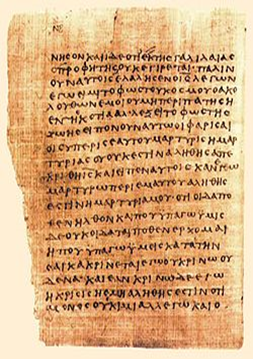 ΝΗϹΟΝΚΑΙΙΔΕΟΤΙΕΚΤΗϹΓΑΛΙΛΑΙΑϹ
ΟΠΡΟΦΗΤΗϹΟΥΚΕΓΕΙΡΕΤΑΙ ΠΑΛΙΝ
ΟΥΝΑΥΤΟΙϹΕΛΑΛΗϹΕΝΟΙϹΛΕΓΩΝ
ΕΓΩΕΙΜΙΤΟΦΩϹΤΟΥΚΟϹΜΟΥΟΑΚΟ
ΛΟΥΘΩΝΕΜΟΙΟΥΜΗΠΕΡΙΠΑΤΗϹΗ
ΕΝΤΗϹΚΟΤΙΑΑΛΛΕΞΕΙΤΟΦΩϹΤΗϹ
ΖΩΗϹΕΙΠΟΝΟΥΝΑΥΤΩΟΙΦΑΡΙϹΑΙ
ΟΙϹΥΠΕΡΙϹΕΑΥΤΟΥΜΑΡΤΥΡΙϹΗΜΑΡ
ΤΥΡΙΑϹΟΥΟΥΚΕϹΤΙΝΑΛΗΘΗϹ ΑΠΕ
ΚΡΙΘΗΙϹΚΑΙΕΙΠΕΝΑΥΤΟΙϹΚΑΝΕΓΩ
ΜΑΡΤΥΡΩΠΕΡΙΕΜΑΥΤΟΥΑΛΗΘΗϹ
ΕϹΤΙΝΗΜΑΡΤΥΡΙΑΜΟΥΟΤΙΟΙΔΑΠΟ
ΘΕΝΗΛΘΟΝΚΑΙΠΟΥΥΠΑΓΩΥΜΕΙϹ
ΔΕΟΥΚΟΙΔΑΤΑΙΠΟΘΕΝΕΡΧΟΜΑΙ
ΗΠΟΥΥΠΑΓΩΥΜΕΙϹΚΑΤΑΤΗΝ
ϹΑΡΚΑΚΡΙΝΕΤΑΙΕΓΩΟΥΚΡΙΝΩΟΥ
ΔΕΝΑΚΑΙΕΑΝΚΡΙΝΩΔΕΕΓΩ
ΗΚΡΙϹΙϹΗΕΜΗΑΛΗΘΗϹΕϹΤΙΝΟΤΙ
ΜΟΝΟϹΟΥΚΙΜΙΑΛΛΕΓΩΚΑΙΟ